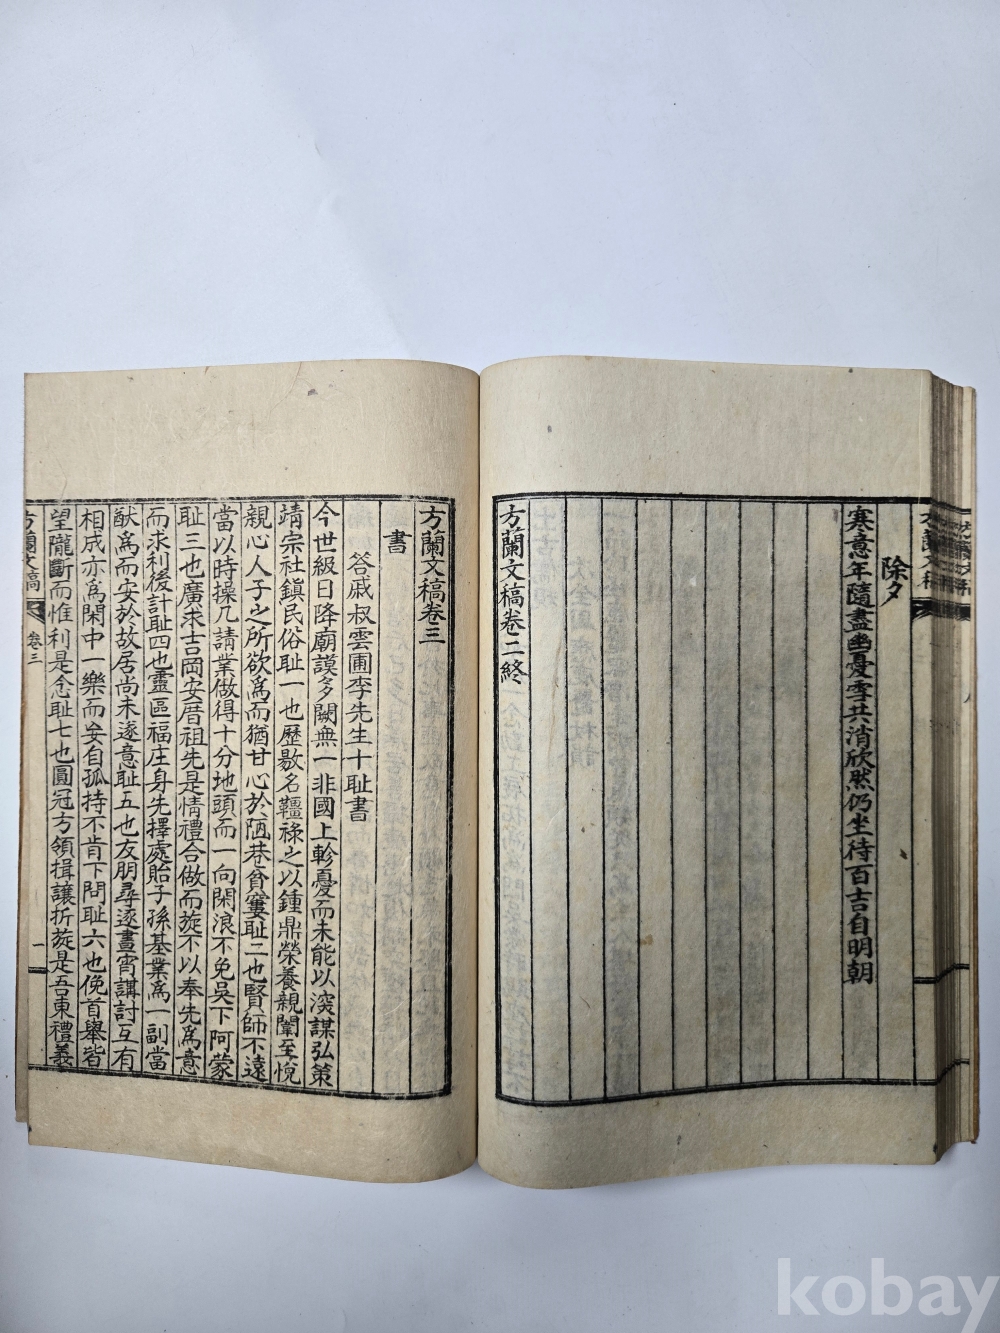 除夕
寒意年隨盡幽憂季共消欣然仍坐待百吉自明朝
方蘭文稿卷二終
方蘭文稿卷三
書
答戚叔雲圃李先生十耻書
今世級日降廟謨多闕無一非國上軫憂而未能以深謀弘策
靖宗社鎭民俗耻一也歷敭名韁祿之以鍾鼎榮養親闈至悅
親心人子之所欲爲而猶甘心於陋巷貧窶耻二也賢師不遠
當以時操几請業做得十分地頭而一向閑浪不免吳下阿蒙
耻三也廣求吉岡安厝祖先是情禮合做而旋不以奉先爲意
而求利後計耻四也靈區福庄身先擇處貽子孫基業爲一副當
猷爲而安於故居尚未遂意耻五也友朋尋逐晝宵講討互有
相成亦爲閑中一樂而妄自孤持不肯下問耻六也俛首舉皆
望隴斷而惟利是念耻七也圓冠方領揖讓折旋是吾東禮義
方蘭文稿
卷三
一
kobay